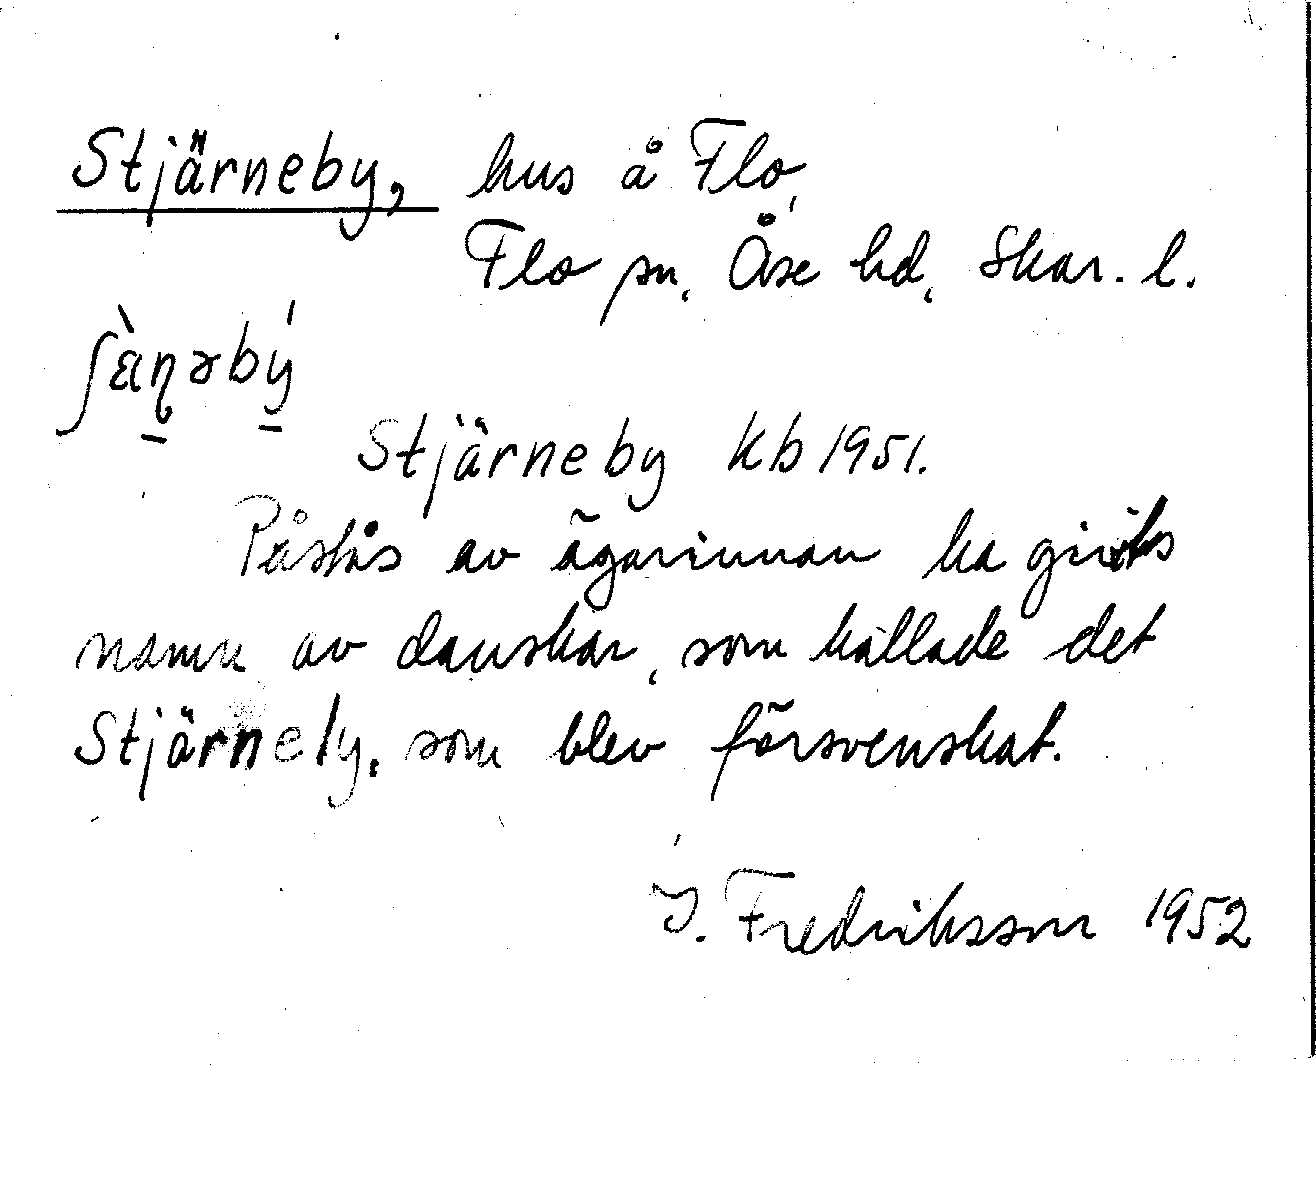 Stjärneby, hus å Flo,
Flo sn, Åse hd, Skar. l.
ʃɛ̀ɳəbý
Stjärneby kb 1951.
Påstås av ägarinnan ha givits
namn av danskar, som kallade det
Stjärnely, som blev försvenskat.
J. Fredriksson 1952